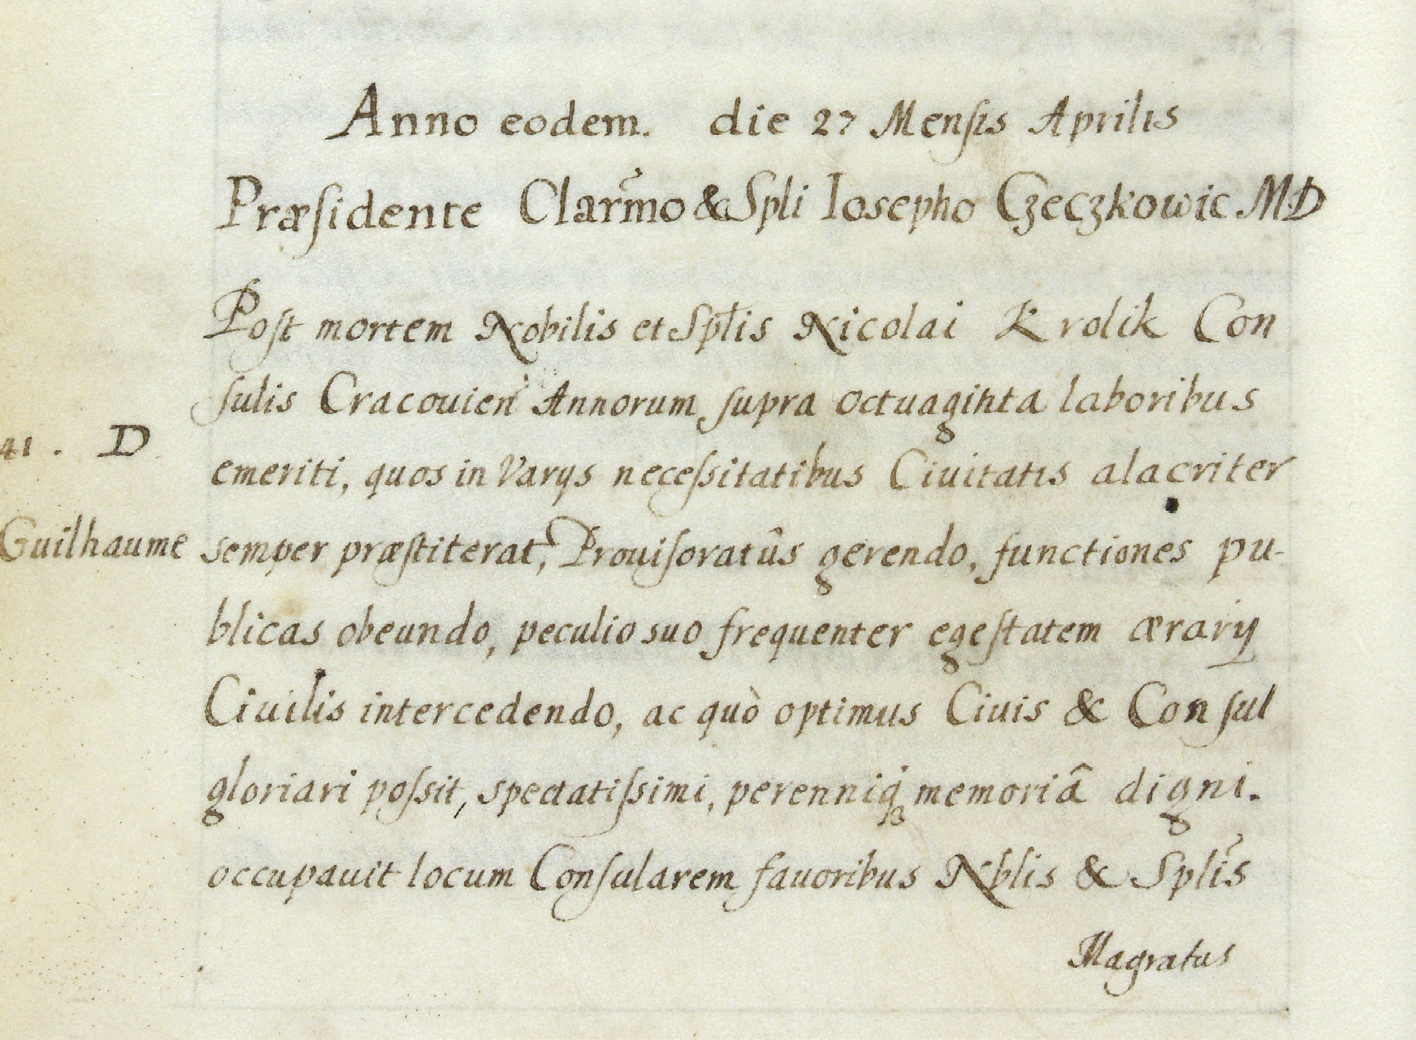 Anno eodem. die 27 Mensis Aprilis
Præsidente Clarmo & Spli Iosepho Czeczkowic MD
Post mortem Nobilis et Splis Nicolai Krolik Con
sulis Cracouien Annorum supra octuaginta laboribus
41. D
emeriti, quos in Varijs necessitatibus Ciuitatis alacriter
Guilhaume
semper præstiterat, Prouisoratûs gerendo, functiones pu-
blicas obeundo, peculio suo frequenter egestatem ærarij
Ciuilis intercedendo, ac quò optimus Ciuis & Consul
gloriari possit, spectatissimi, perenniq memoriâ digni.
occupauit locum Consularem fauoribus Nblis & Splis
Magratus